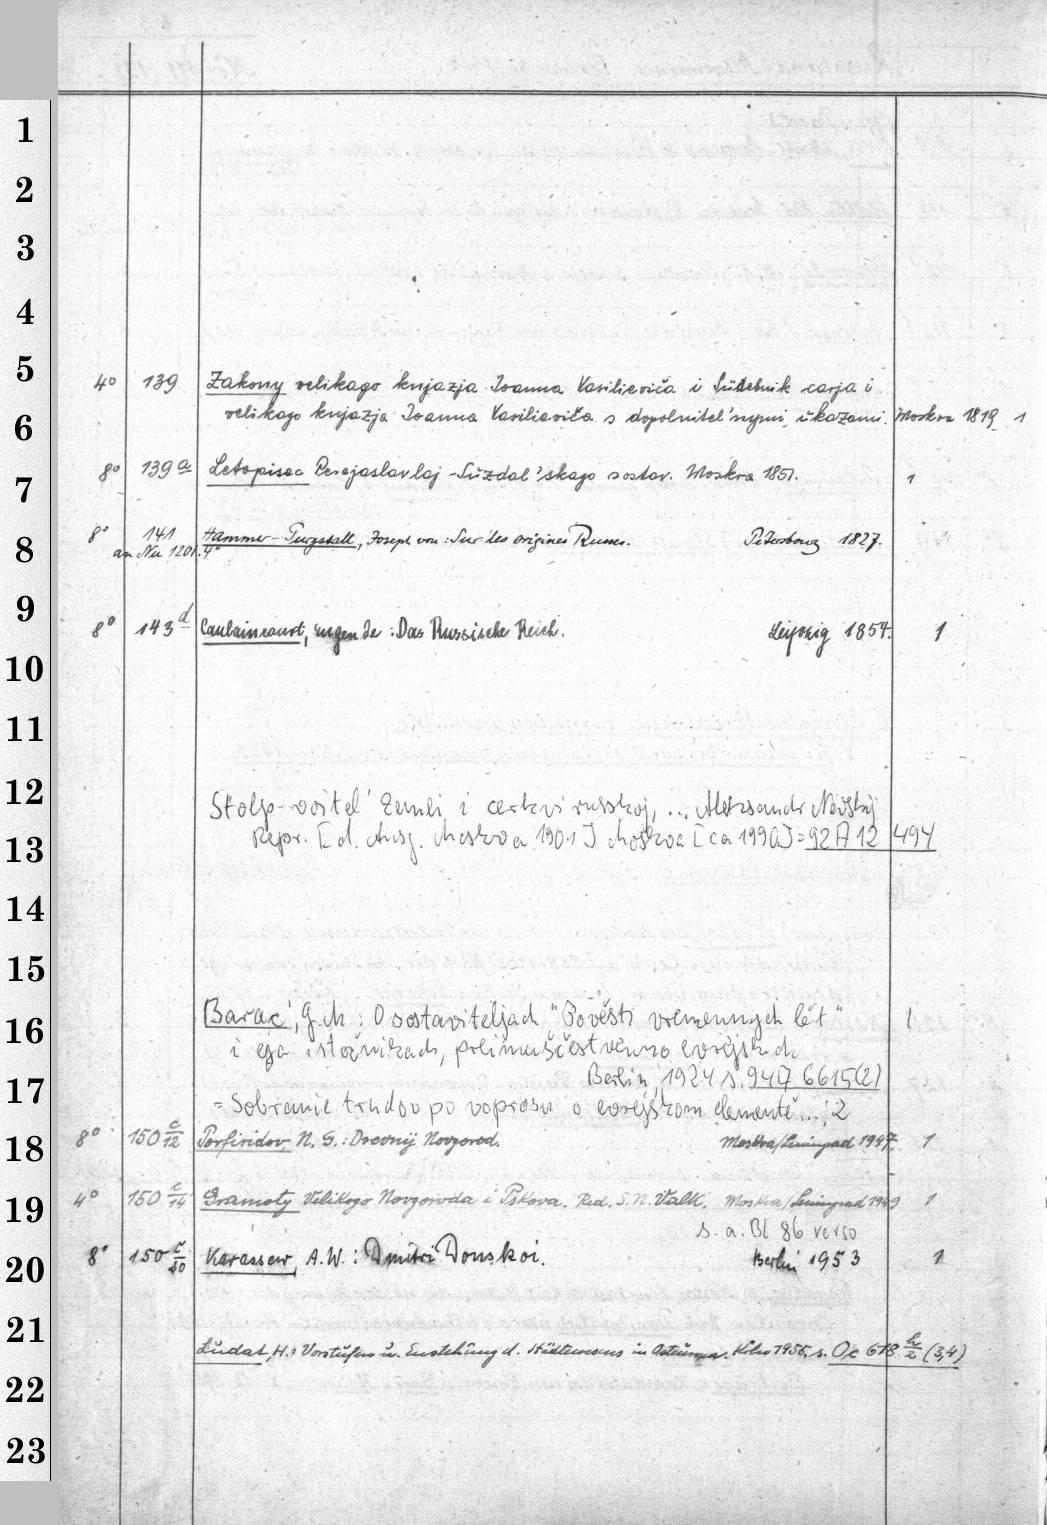 1
2
3
4
5
4° 139 Zakony velikago knjazja Ioanna Vasilieviča i Sudebnik carja i
6
velikago knjazja Ioanna Vasilieviča s dopolnitel'nymi ukazami. Moskva 1819 1
7
8° 139 a Letopisec Perejaslavlaj-Suzdal'skago sostav. Moskva 1851. 1
8
8° 141 Hammer-Purgstall, Joseph von: Sur les origines Russes. Petersbourg 1827.
an Nu 1201. 4°
9
8° 143 d Caulaincourt, Eugen de: Das Russische Reich. Leipzig 1854. 1
10
11
12
Stolp- zemli i cerkvi russkoj, ... Aleksandr Nevskij
13
Repr. [d. Ausg. Moskva 1901] Moskva [ca 1990] = 92 A 12 494
14
15
16
Barac, G. M.: O sostaviteljach "Pověsti vremennych lět" 1
i eja istočnikach, preimuščestvenno evrejskich.
17
Berlin, 1924 s. 947 6615(2)
= Sobranie trudov po voprosu o evrejskom elementě...; 2
18
8° 150 c/12 Porfiridov, N. G.: Drevnij Novgorod. Moskva/Leningrad 1947. 1
19
4° 150 c/14 Gramoty Velikogo Novgoroda i Pskova. Red. S. N. Valk. Moskva/Leningrad 1949 1
s. a. Bl 86 verso
20
8° 150 c/20 Karassew, A. W.: Dmitri Donskoi. Berlin 1953 1
21
Ludat, H.: Vorstufen u. Entstehung d. Städtewesens in Osteuropa. Köln 1955. s. Oc 618 h/2 (3,4)
22
23